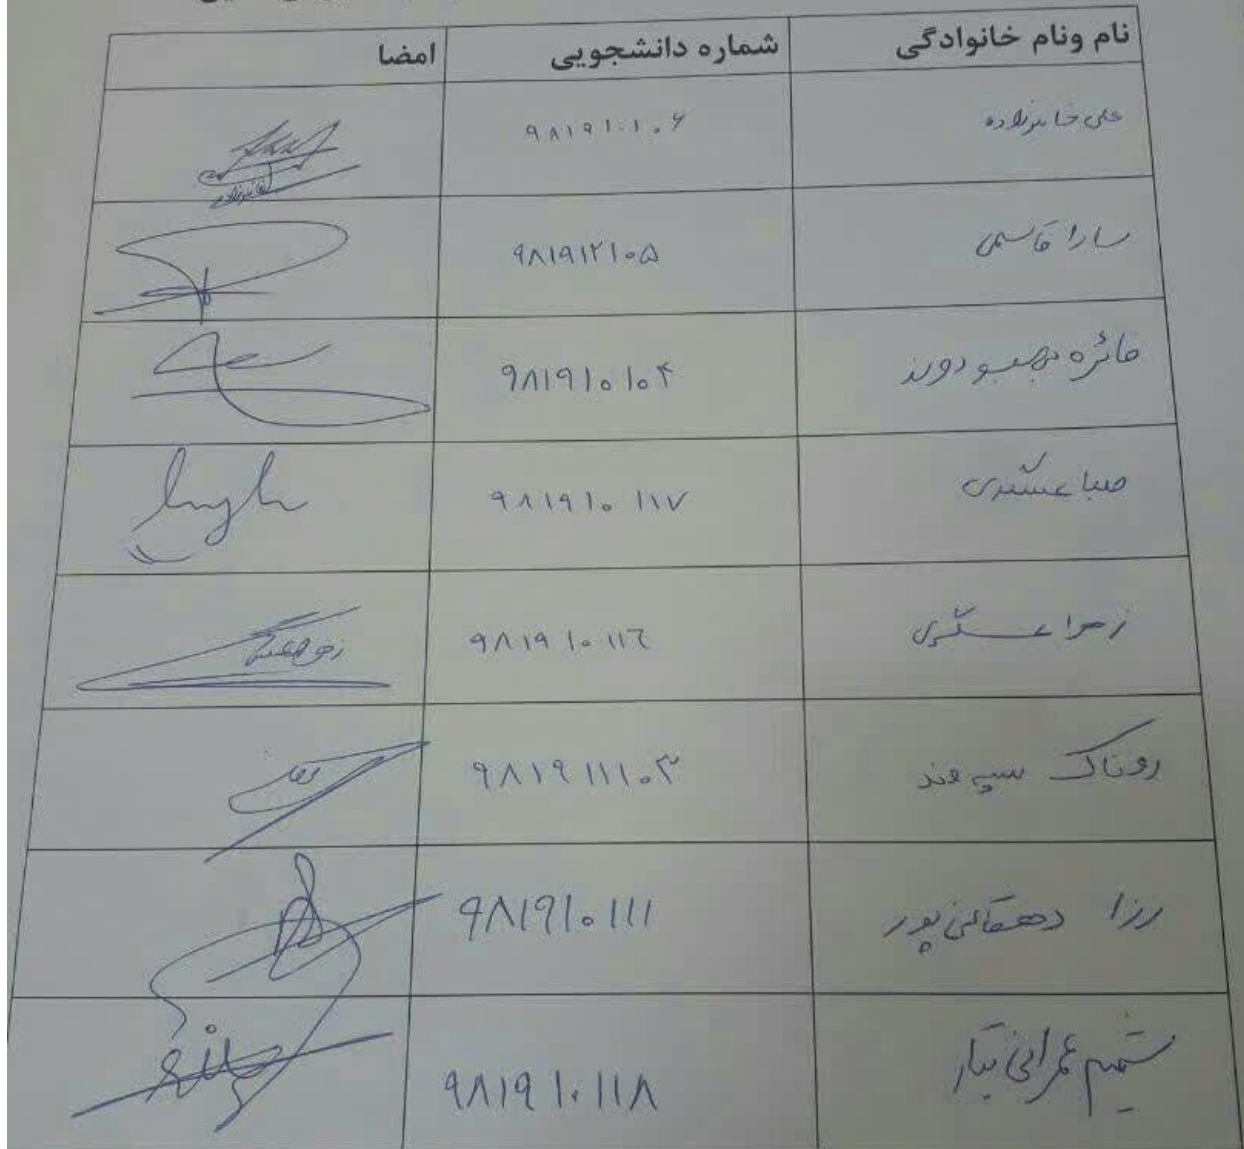 نام ونام خانوادگی شماره دانشجویی امضا
علی خانزاده ۹۸۱۹۱۰۱۰۶
سارا قاسمی ۹۸۱۹۱۲۱۰۵
مائره بهبودوند ۹۸۱۹۱۰۱۰۴
صبا عسگری ۹۸۱۹۱۰۱۱۷
زهرا عسگری ۹۸۱۹۱۰۱۱۶
روناک سپه وند ۹۸۱۹۱۱۱۰۳
رزا دهقانی پور ۹۸۱۹۱۰۱۱۱
شمیم عمرانی تبار ۹۸۱۹۱۰۱۱۸